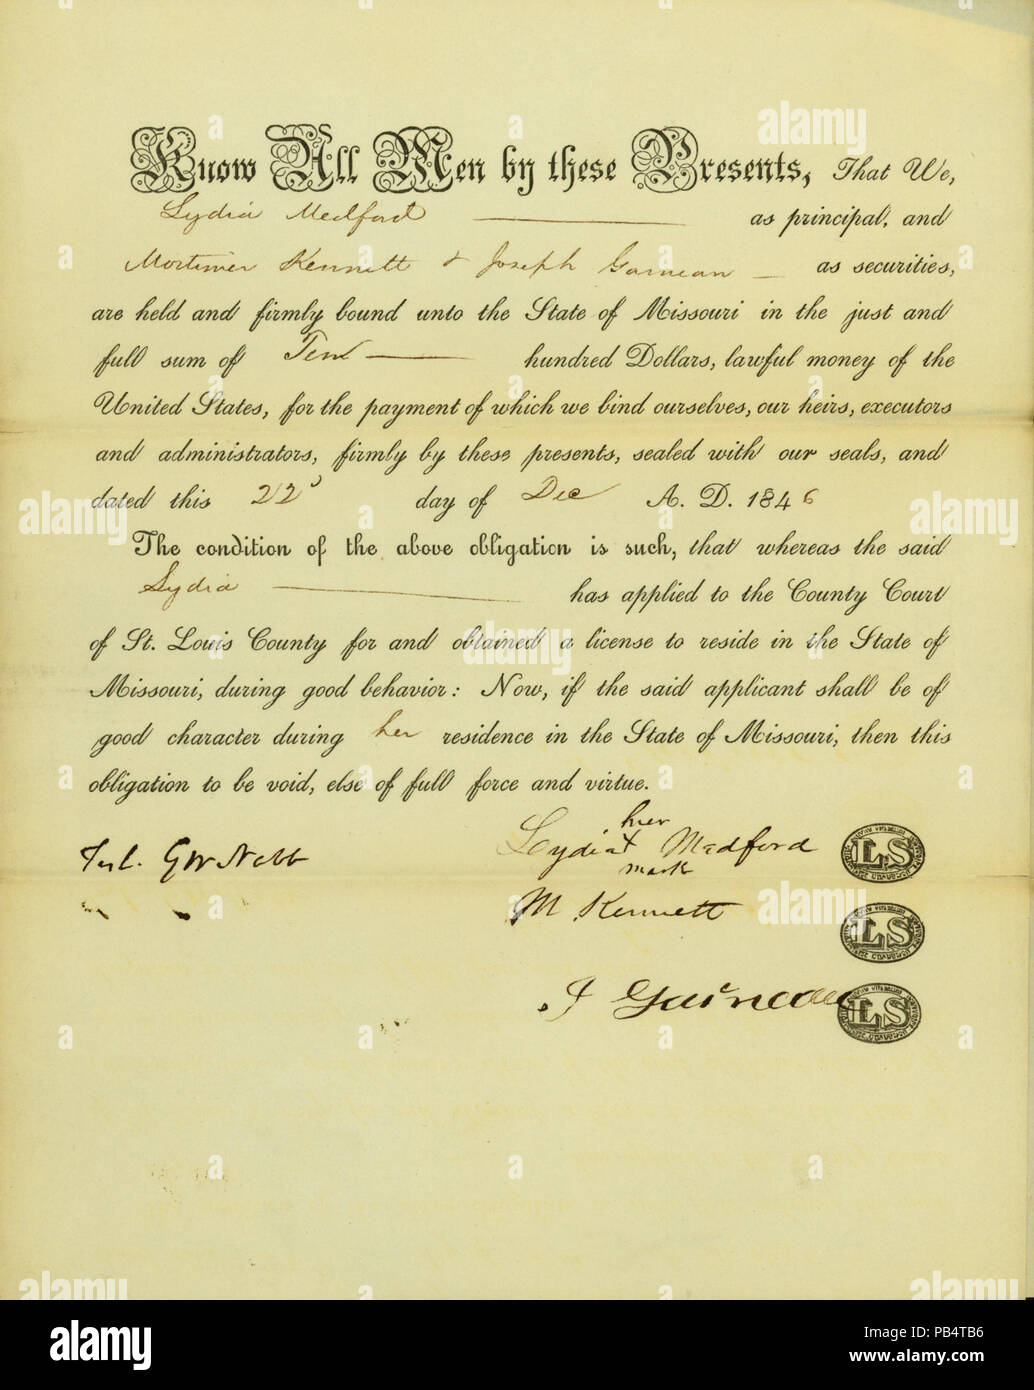 Know All Men by these Presents, That We,
Lydia Medford as principal, and
Mortimer Kennett & Joseph Garneau as securities,
are held and firmly bound unto the State of Missouri in the just and
full sum of Ten hundred Dollars, lawful money of the
United States, for the payment of which we bind ourselves, our heirs, executors
and administrators, firmly by these presents, sealed with our seals, and
dated this 22d day of Dec A. D. 1846
The condition of the above obligation is such, that whereas the said
Lydia has applied to the County Court
of St. Louis County for and obtained a license to reside in the State of
Missouri, during good behavior: Now, if the said applicant shall be of
good character during her residence in the State of Missouri, then this
obligation to be void, else of full force and virtue.
her
Lydia X Medford LS
mark
M Kennett LS
J Garneau LS
alamy
a
alamy stock photo
PB4TB6
www.alamy.com